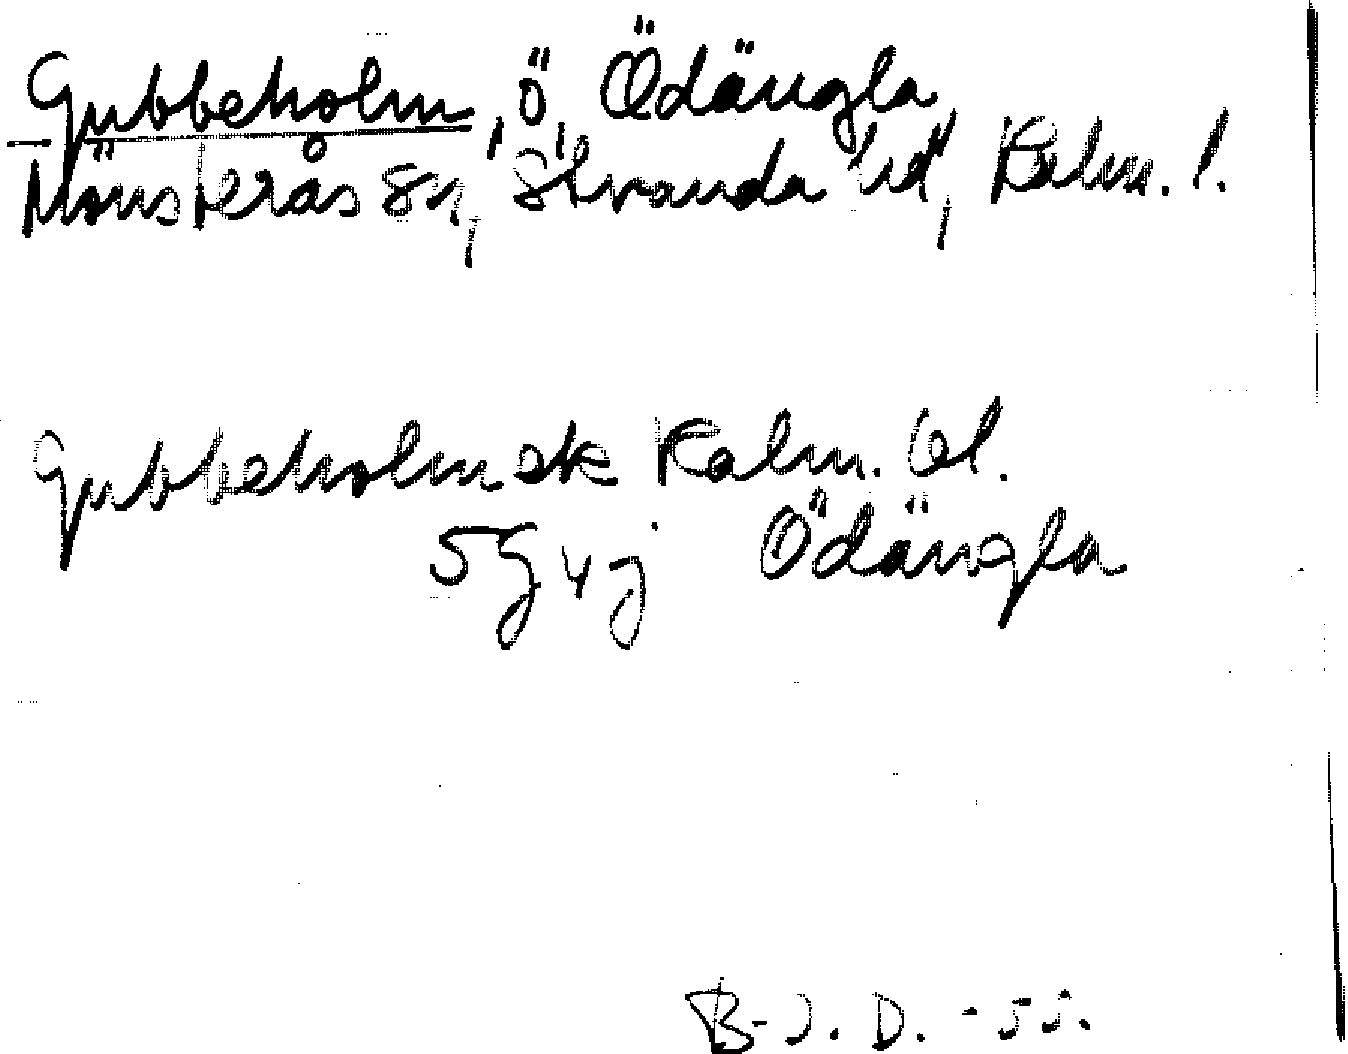 Gubbeholm, ö, Ödängla,
Mönsterås sn, Stranda hd, Kalm. l.
Gubbeholm ek Kalm. öl.
5g 4j Ödängla
B-J. D. -55.